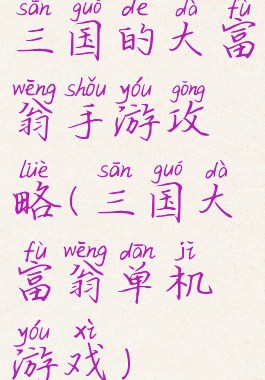 sān guó de dà fù
三国的大富
wēng shǒu yóu gōng
翁手游攻
lüè sān guó dà
略(三国大
fù wēng dān jī
富翁单机
yóu xì
游戏)